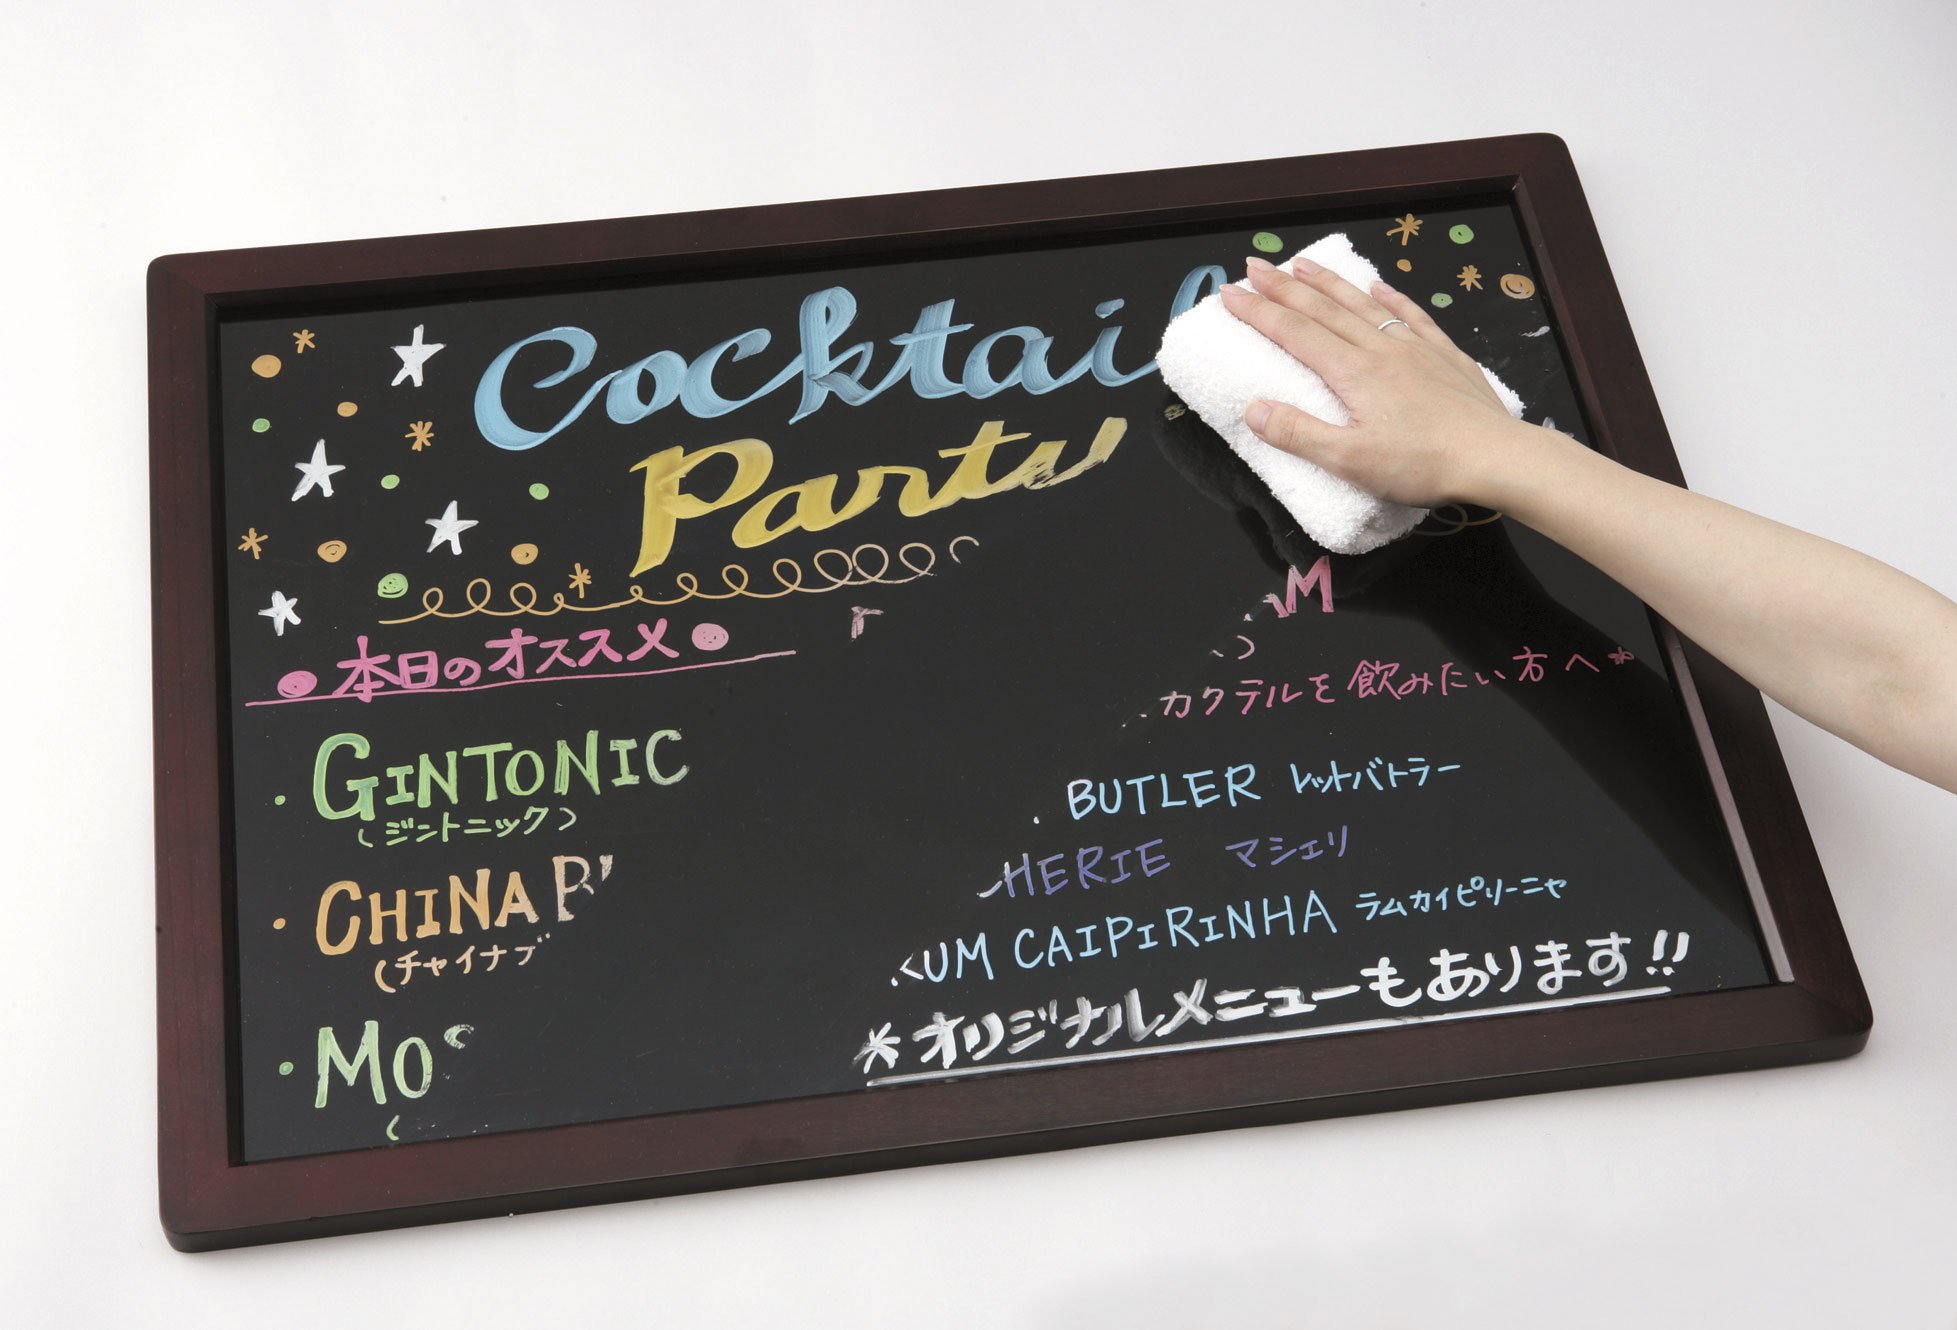 Cocktail
Party
本日のオススメ
・GINTONIC
(ジントニック)
・CHINA B
(チャイナブ
・MO
M
カクテルを飲みたい方へ*
BUTLER レットバトラー
HERIE マシェリ
UM CAIPIRINHA ラムカイピリーニャ
*オリジナルメニューもあります!!